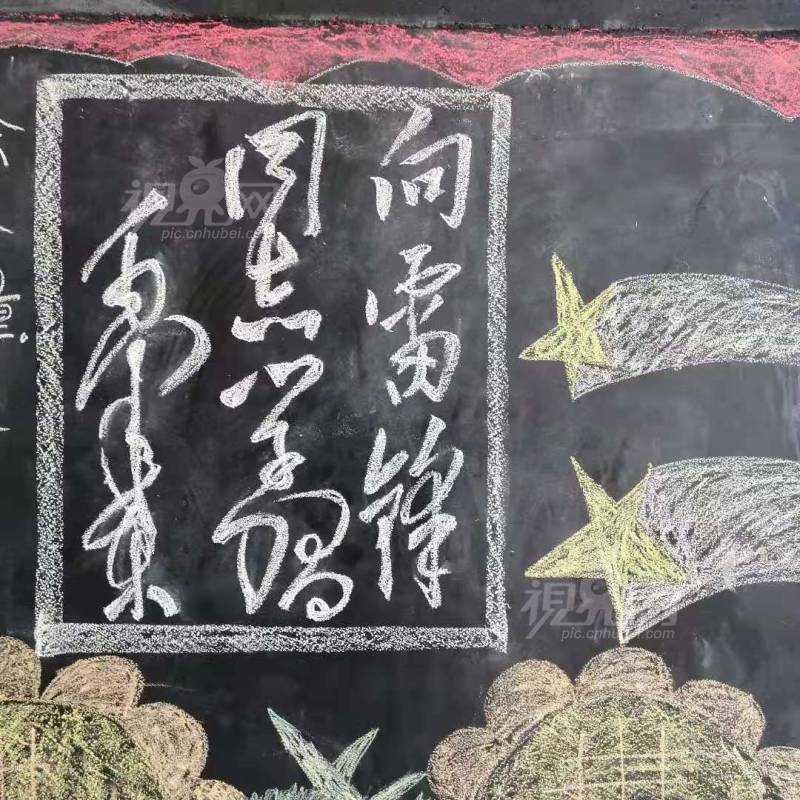 向雷锋
同志学习
毛泽东
視界网
pic.cnhubei.com
視界网
pic.cnhubei.com